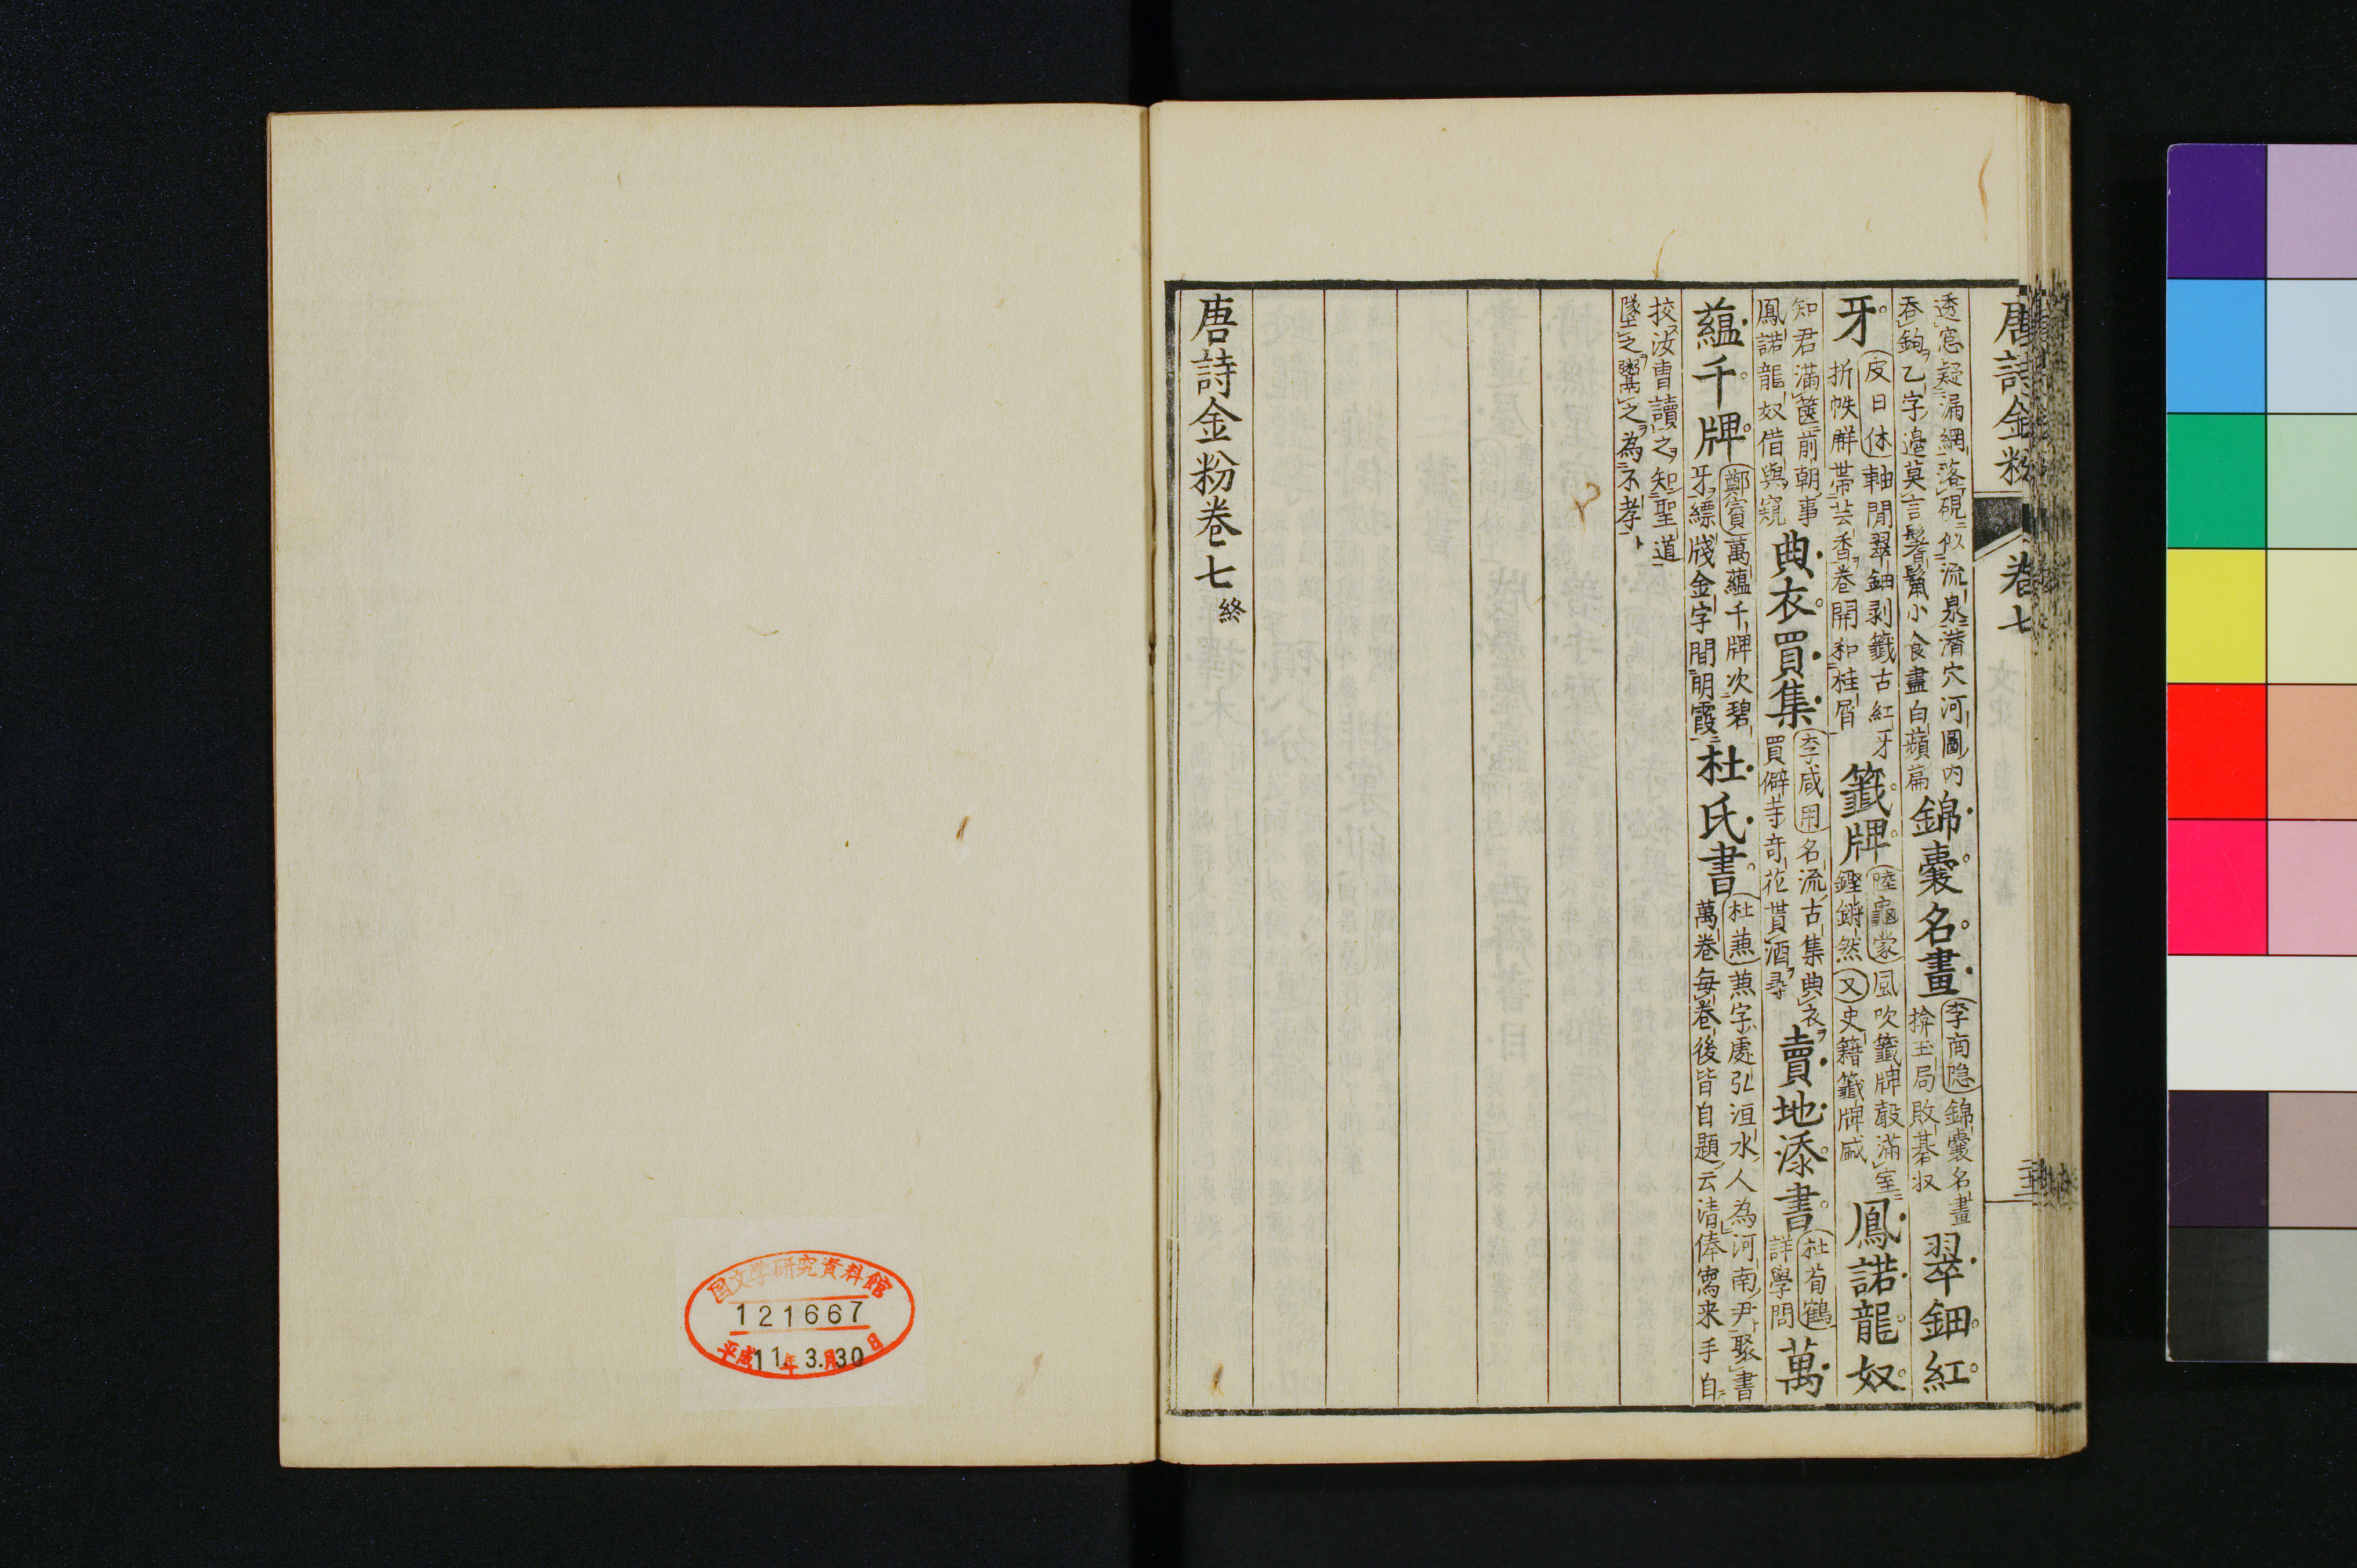 唐詩金粉 卷七
透窓疑漏網落硯似流泉潜穴河圖内
吞鉤乙字邉莫言髻鬣小食盡白蘋篇
錦囊名畫
李商隐錦囊名畫
揜玉局敗碁収
翠鈿紅
牙
皮日休軸閒翠鈿剥籖古紅牙
折帙觧帯芸香卷開和桂屑
籖牌
陸龜蒙風吹籖牌聲滿室
鏗鏘然又史籍籖牌感
鳳諾龍奴
知君滿篋前朝事
鳳諾龍奴借與窺
典衣買集
李咸用名流古集典衣
買僻寺奇花貰酒尋
賣地添書
杜荀鶴
詳學問
萬
蘊千牌
鄭賓萬蘊千牌次碧
牙縹牋金字間明霞
杜氏書
杜蕙蕙字處弘洹水人為河南尹聚書
萬卷每卷後皆自題云清俸寫来手自
挍汝曹讀之知聖道
墜之鬻之為不孝
唐詩金粉卷七終
国文学研究資料館
121667
平成11年3月30日